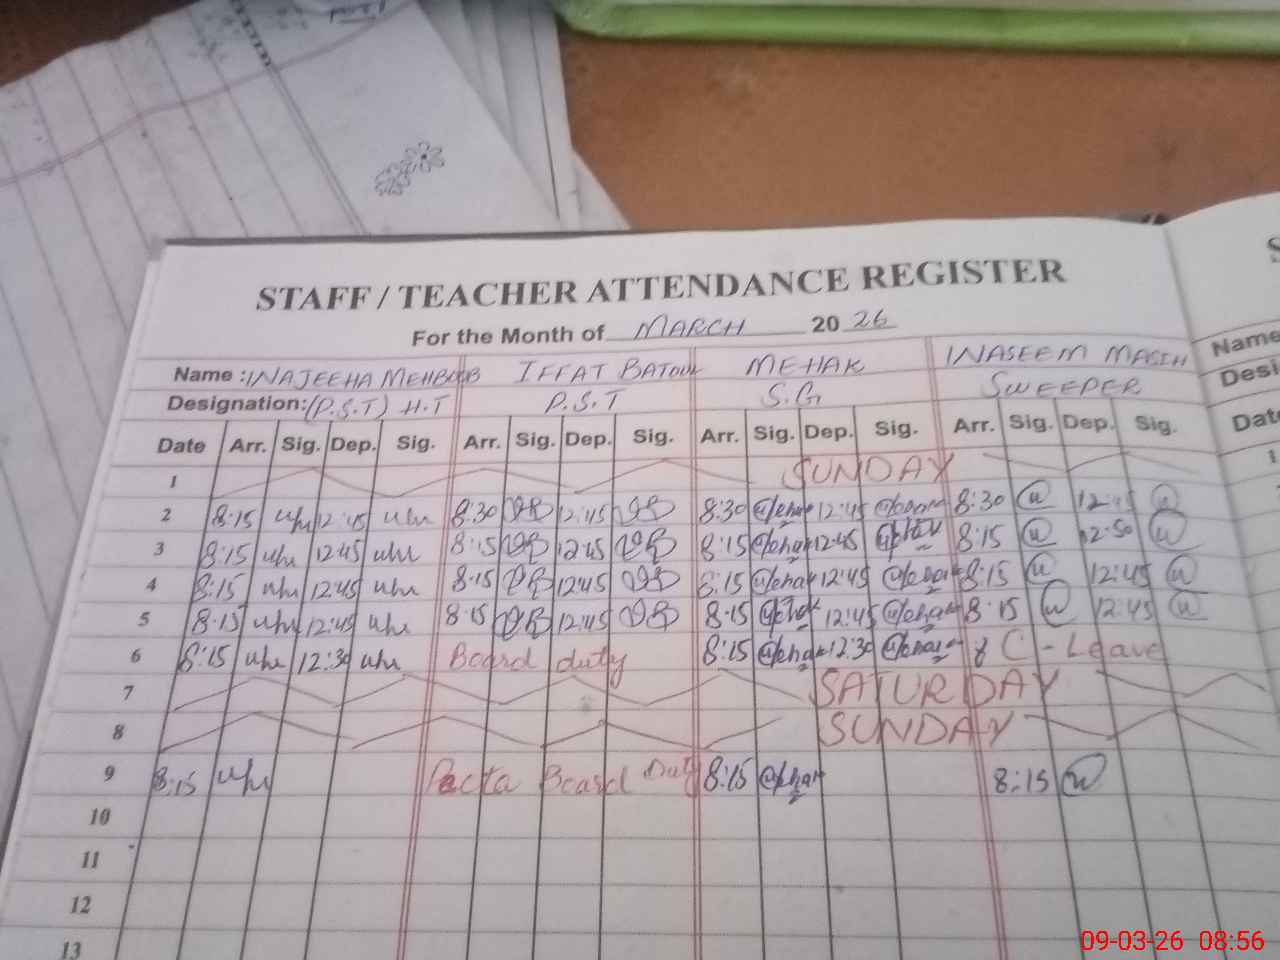 STAFF / TEACHER ATTENDANCE REGISTER
For the Month of MARCH 2026
Name : WAJEEHA MEHBOOB IFFAT BATOUL MEHAK WASEEM MASIH Name
Designation: (P.S.T) H.T P.S.T S.G SWEEPER Desi
Date Arr. Sig. Dep. Sig. Arr. Sig. Dep. Sig. Arr. Sig. Dep. Sig. Arr. Sig. Dep. Sig. Dat
1 SUNDAY 1
2 8:15 12:45 8:30 12:45 8:30 12:45 8:30 12:45
3 8:15 12:45 8:15 12:45 8:15 12:45 8:15 12:50
4 8:15 12:45 8:15 12:45 8:15 12:45 8:15 12:45
5 8:15 12:45 8:15 12:45 8:15 12:45 8:15 12:45
6 8:15 12:30 Board duty 8:15 12:30 C-Leave
7 SATURDAY
8 SUNDAY
9 8:15 Pecta Board Duty 8:15 8:15
10
11
12
13
09-03-26 08:56